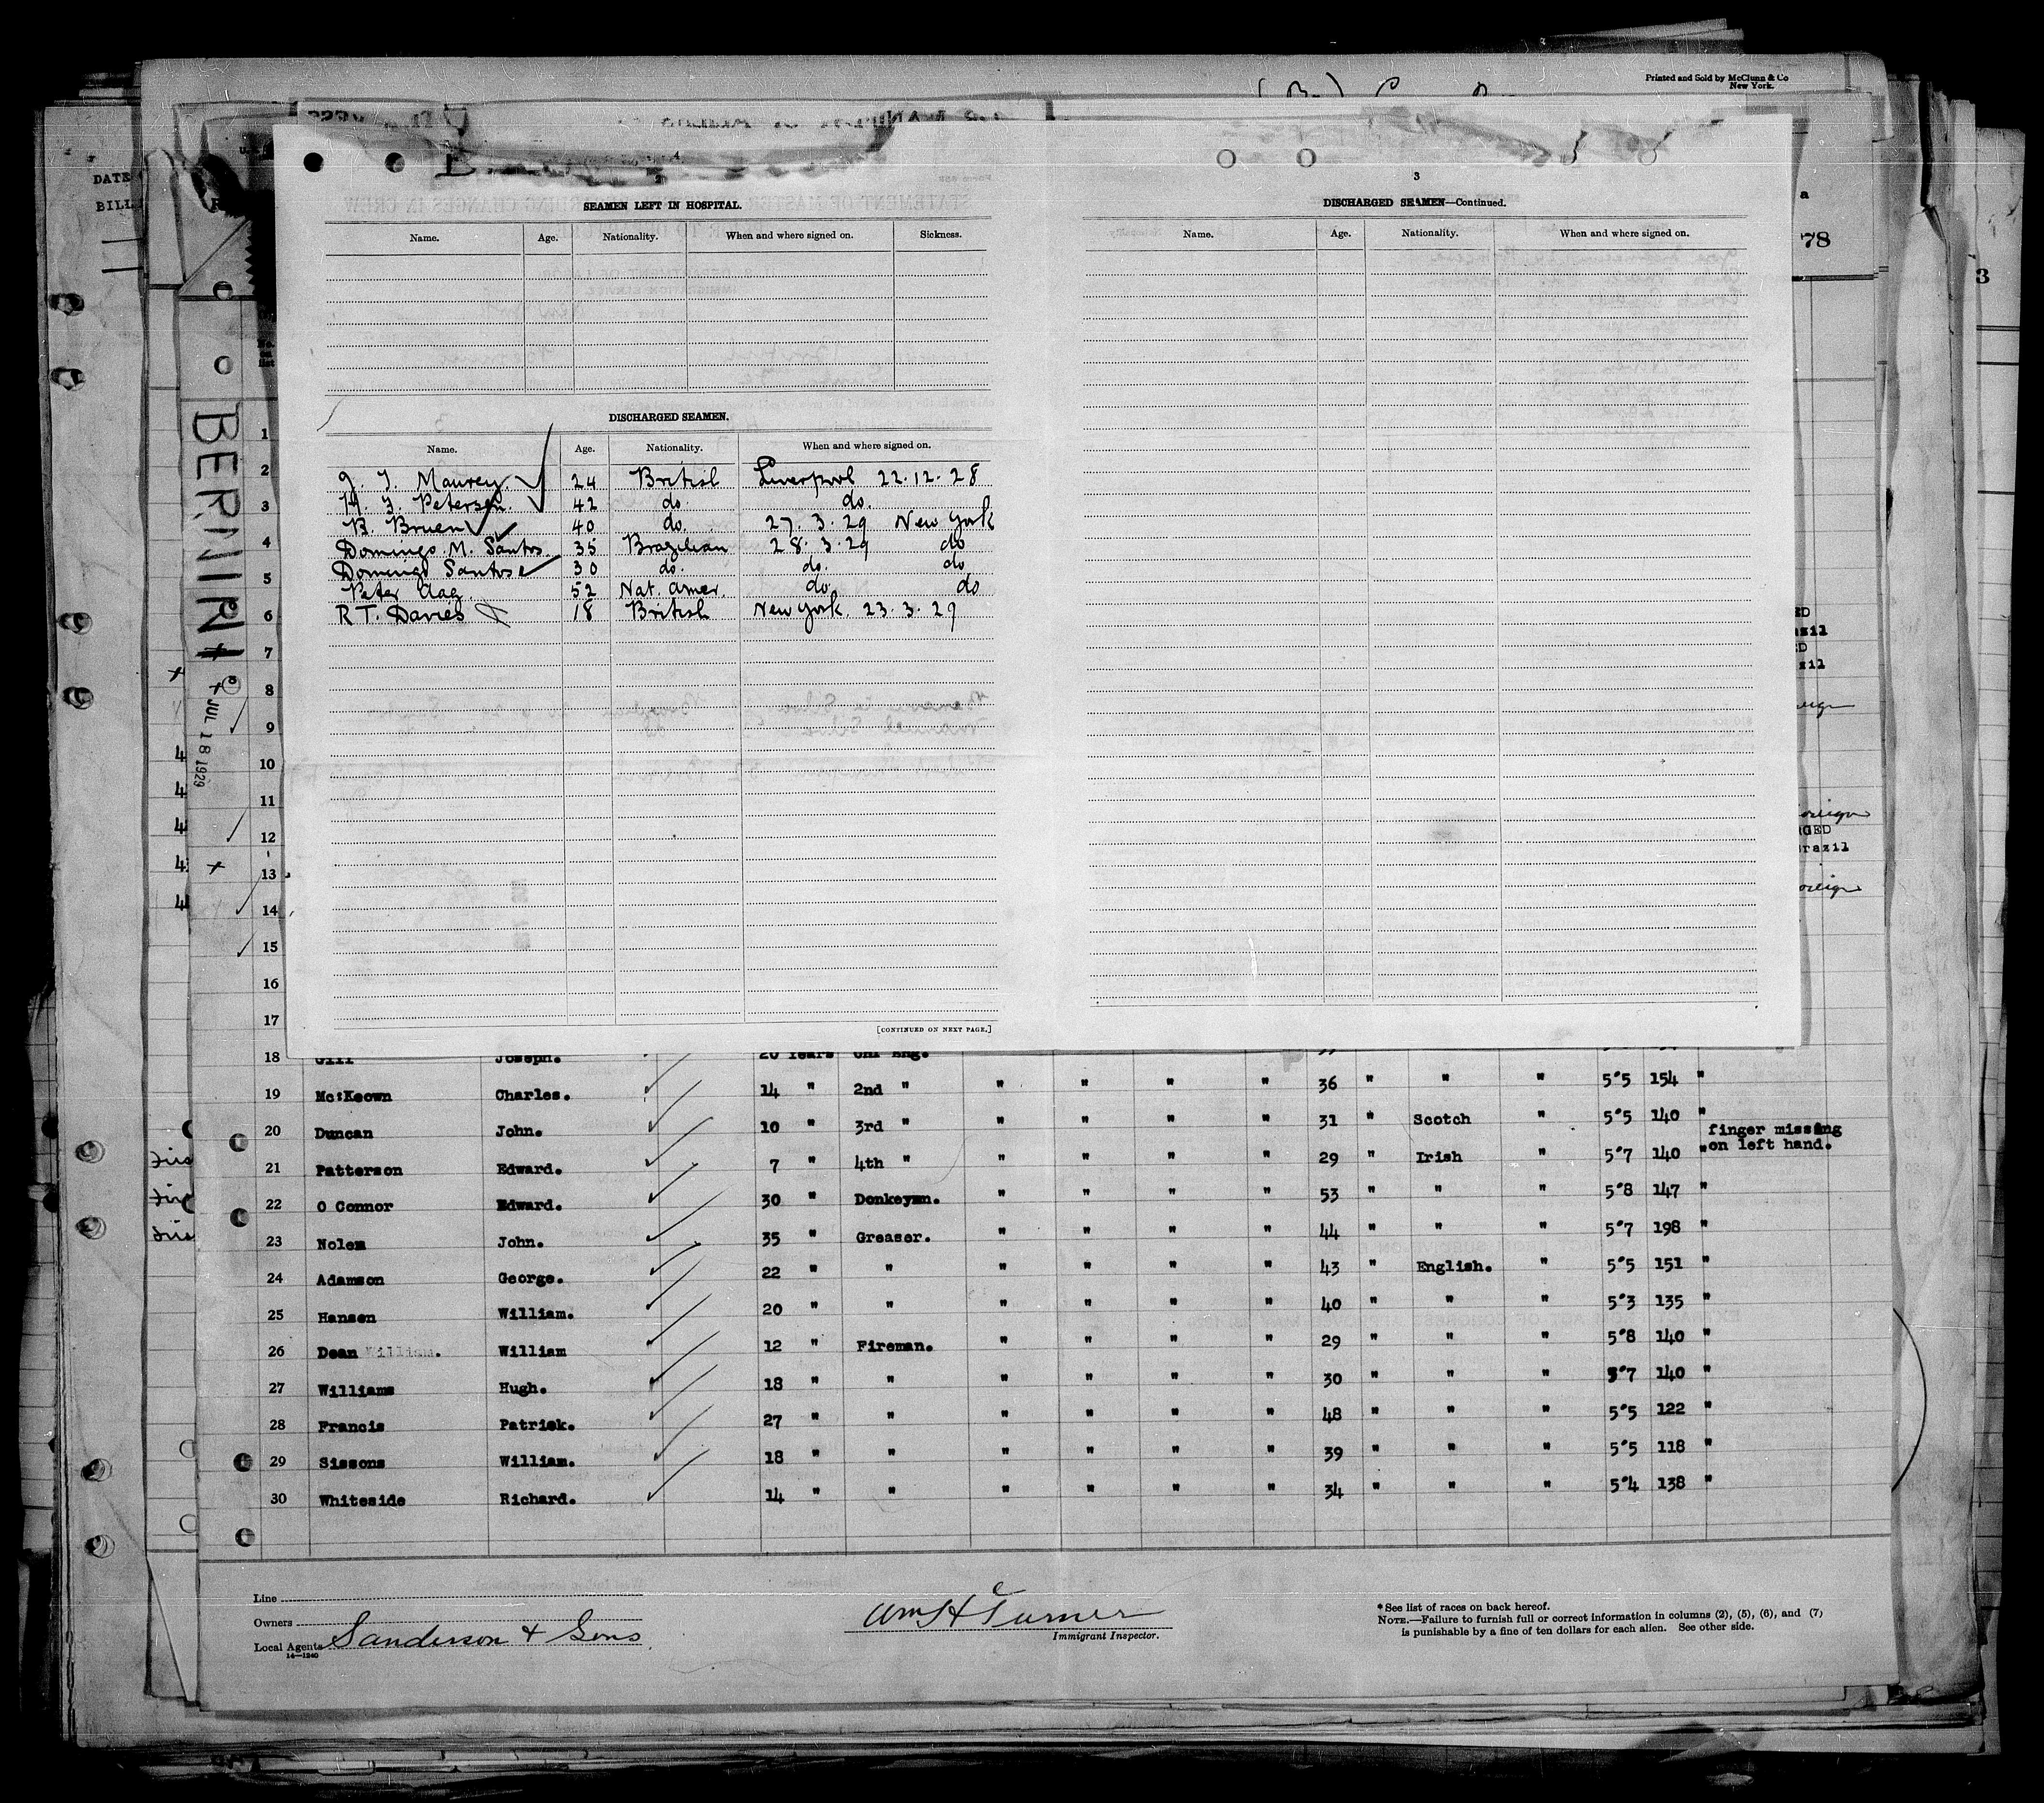 Printed and Sold by McClunn & Co
New York.
DATE
BILL
2
3
SEAMEN LEFT IN HOSPITAL.
DISCHARGED SEAMEN—Continued.
Name. Age. Nationality. When and where signed on. Sickness.
Name. Age. Nationality. When and where signed on.
78
3
DISCHARGED SEAMEN.
Name. Age. Nationality. When and where signed on.
J. J. Maurey. 24 British Liverpool 22.12.28
H. J. Petersen. 42 do. do.
B. Bruen 40 do. 27.3.29 New York
Domingo M. Santos 35 Brazilian 28.3.29 do
Domingo Santos 30 do. do. do
Peter Aag 52 Nat. Amer do. do
R T. Davies 18 British New York. 23.3.29
[CONTINUED ON NEXT PAGE.]
BERNINI
JUL 18 1929
1
2
3
4
5
6
7
8
9
10
11
12
13
14
15
16
17
18 Gill Joseph. 20 Years Chf Eng.
19 Mc:Keown Charles. 14 " 2nd " " " " " 36 " " " 5"5 154 "
20 Duncan John. 10 " 3rd " " " " " 31 " Scotch " 5"5 140 "
finger missing
on left hand.
21 Patterson Edward. 7 " 4th " " " " " 29 " Irish " 5"7 140 "
22 O Connor Edward. 30 " Donkeymn. " " " " 53 " " " 5"8 147 "
23 Nolem John. 35 " Greaser. " " " " 44 " " " 5"7 198 "
24 Adamson George. 22 " " " " " " 43 " English. " 5"5 151 "
25 Hansen William. 20 " " " " " " 40 " " " 5"3 135 "
26 Dean William. William 12 " Fireman. " " " " 29 " " " 5"8 140 "
27 Williams Hugh. 18 " " " " " " 30 " " " 5"7 140 "
28 Francis Patrick. 27 " " " " " " 48 " " " 5"5 122 "
29 Sissons William. 18 " " " " " " 39 " " " 5"5 118 "
30 Whiteside Richard. 14 " " " " " " 34 " " " 5"4 138 "
Line
Owners
Local Agents Sanderson & Sons
14—1240
Wm H Turner
Immigrant Inspector.
*See list of races on back hereof.
NOTE.—Failure to furnish full or correct information in columns (2), (5), (6), and (7)
is punishable by a fine of ten dollars for each alien. See other side.